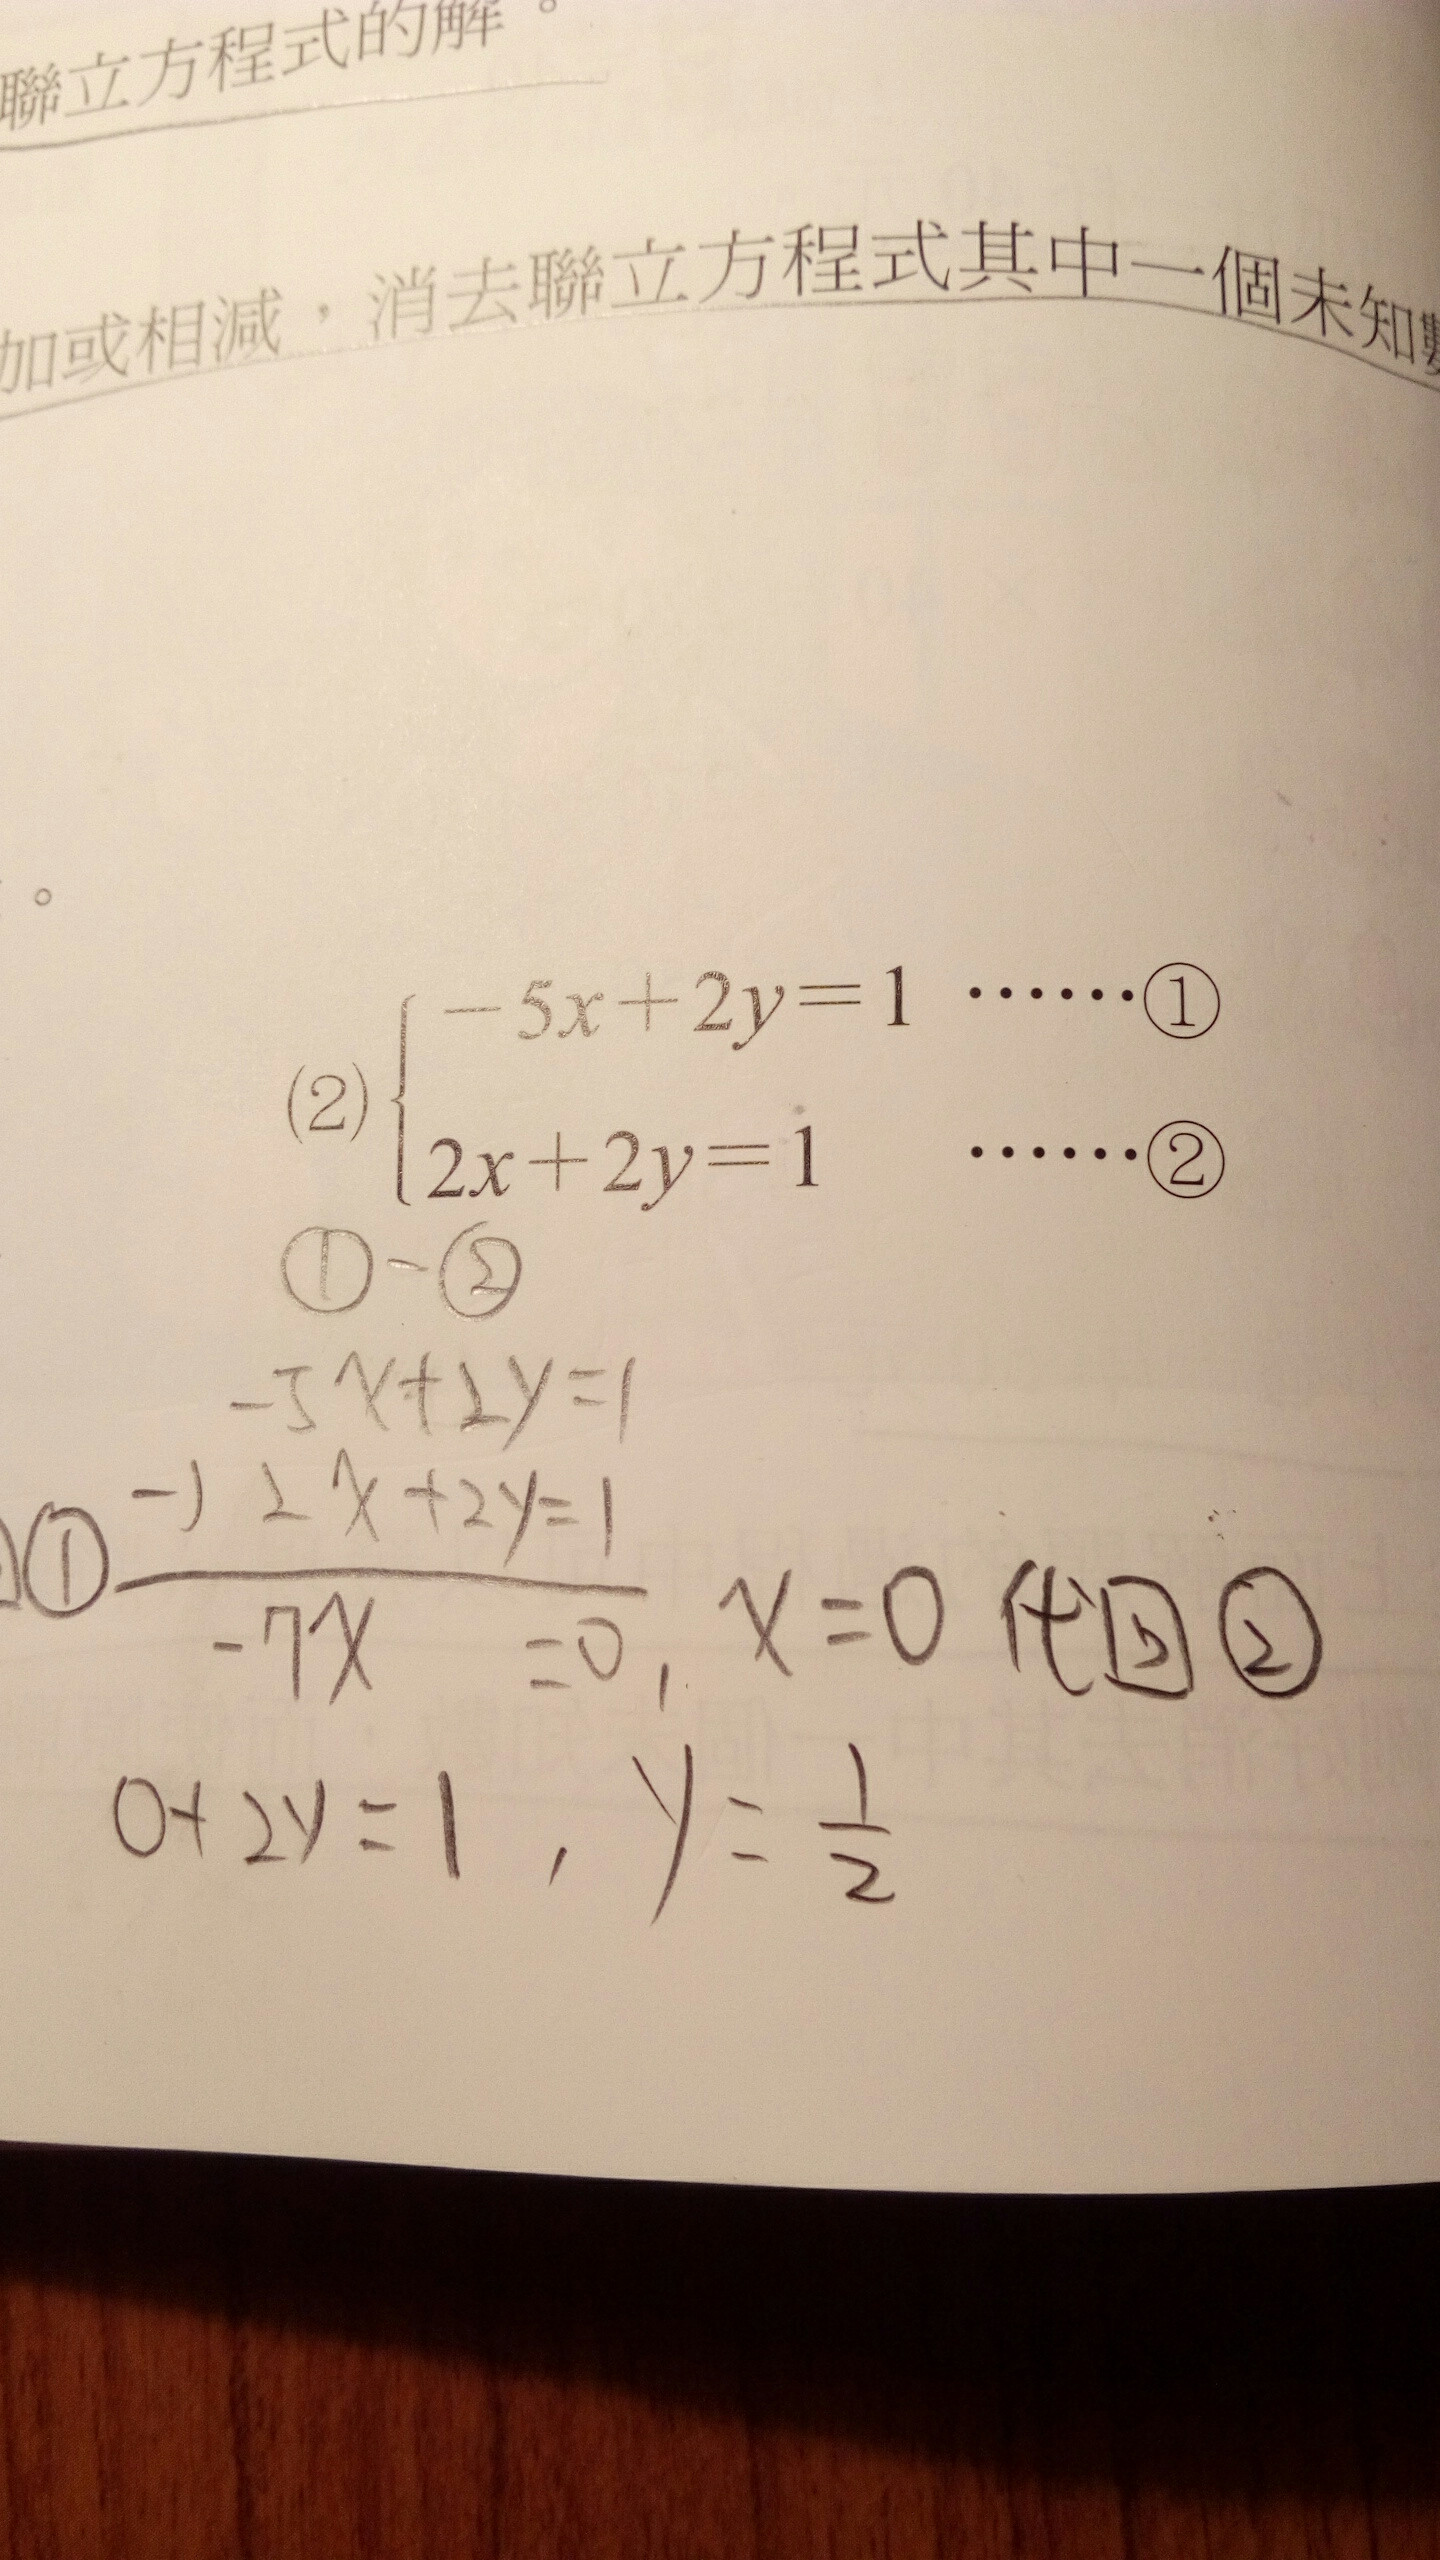 聯立方程式的解。
加或相減，消去聯立方程式其中一個未知數
。
(2) { -5x+2y=1 ……①
2x+2y=1 ……②
①-②
-5x+2y=1
-) 2x+2y=1
①
-7x =0, x=0 代回②
0+2y=1, y=1/2